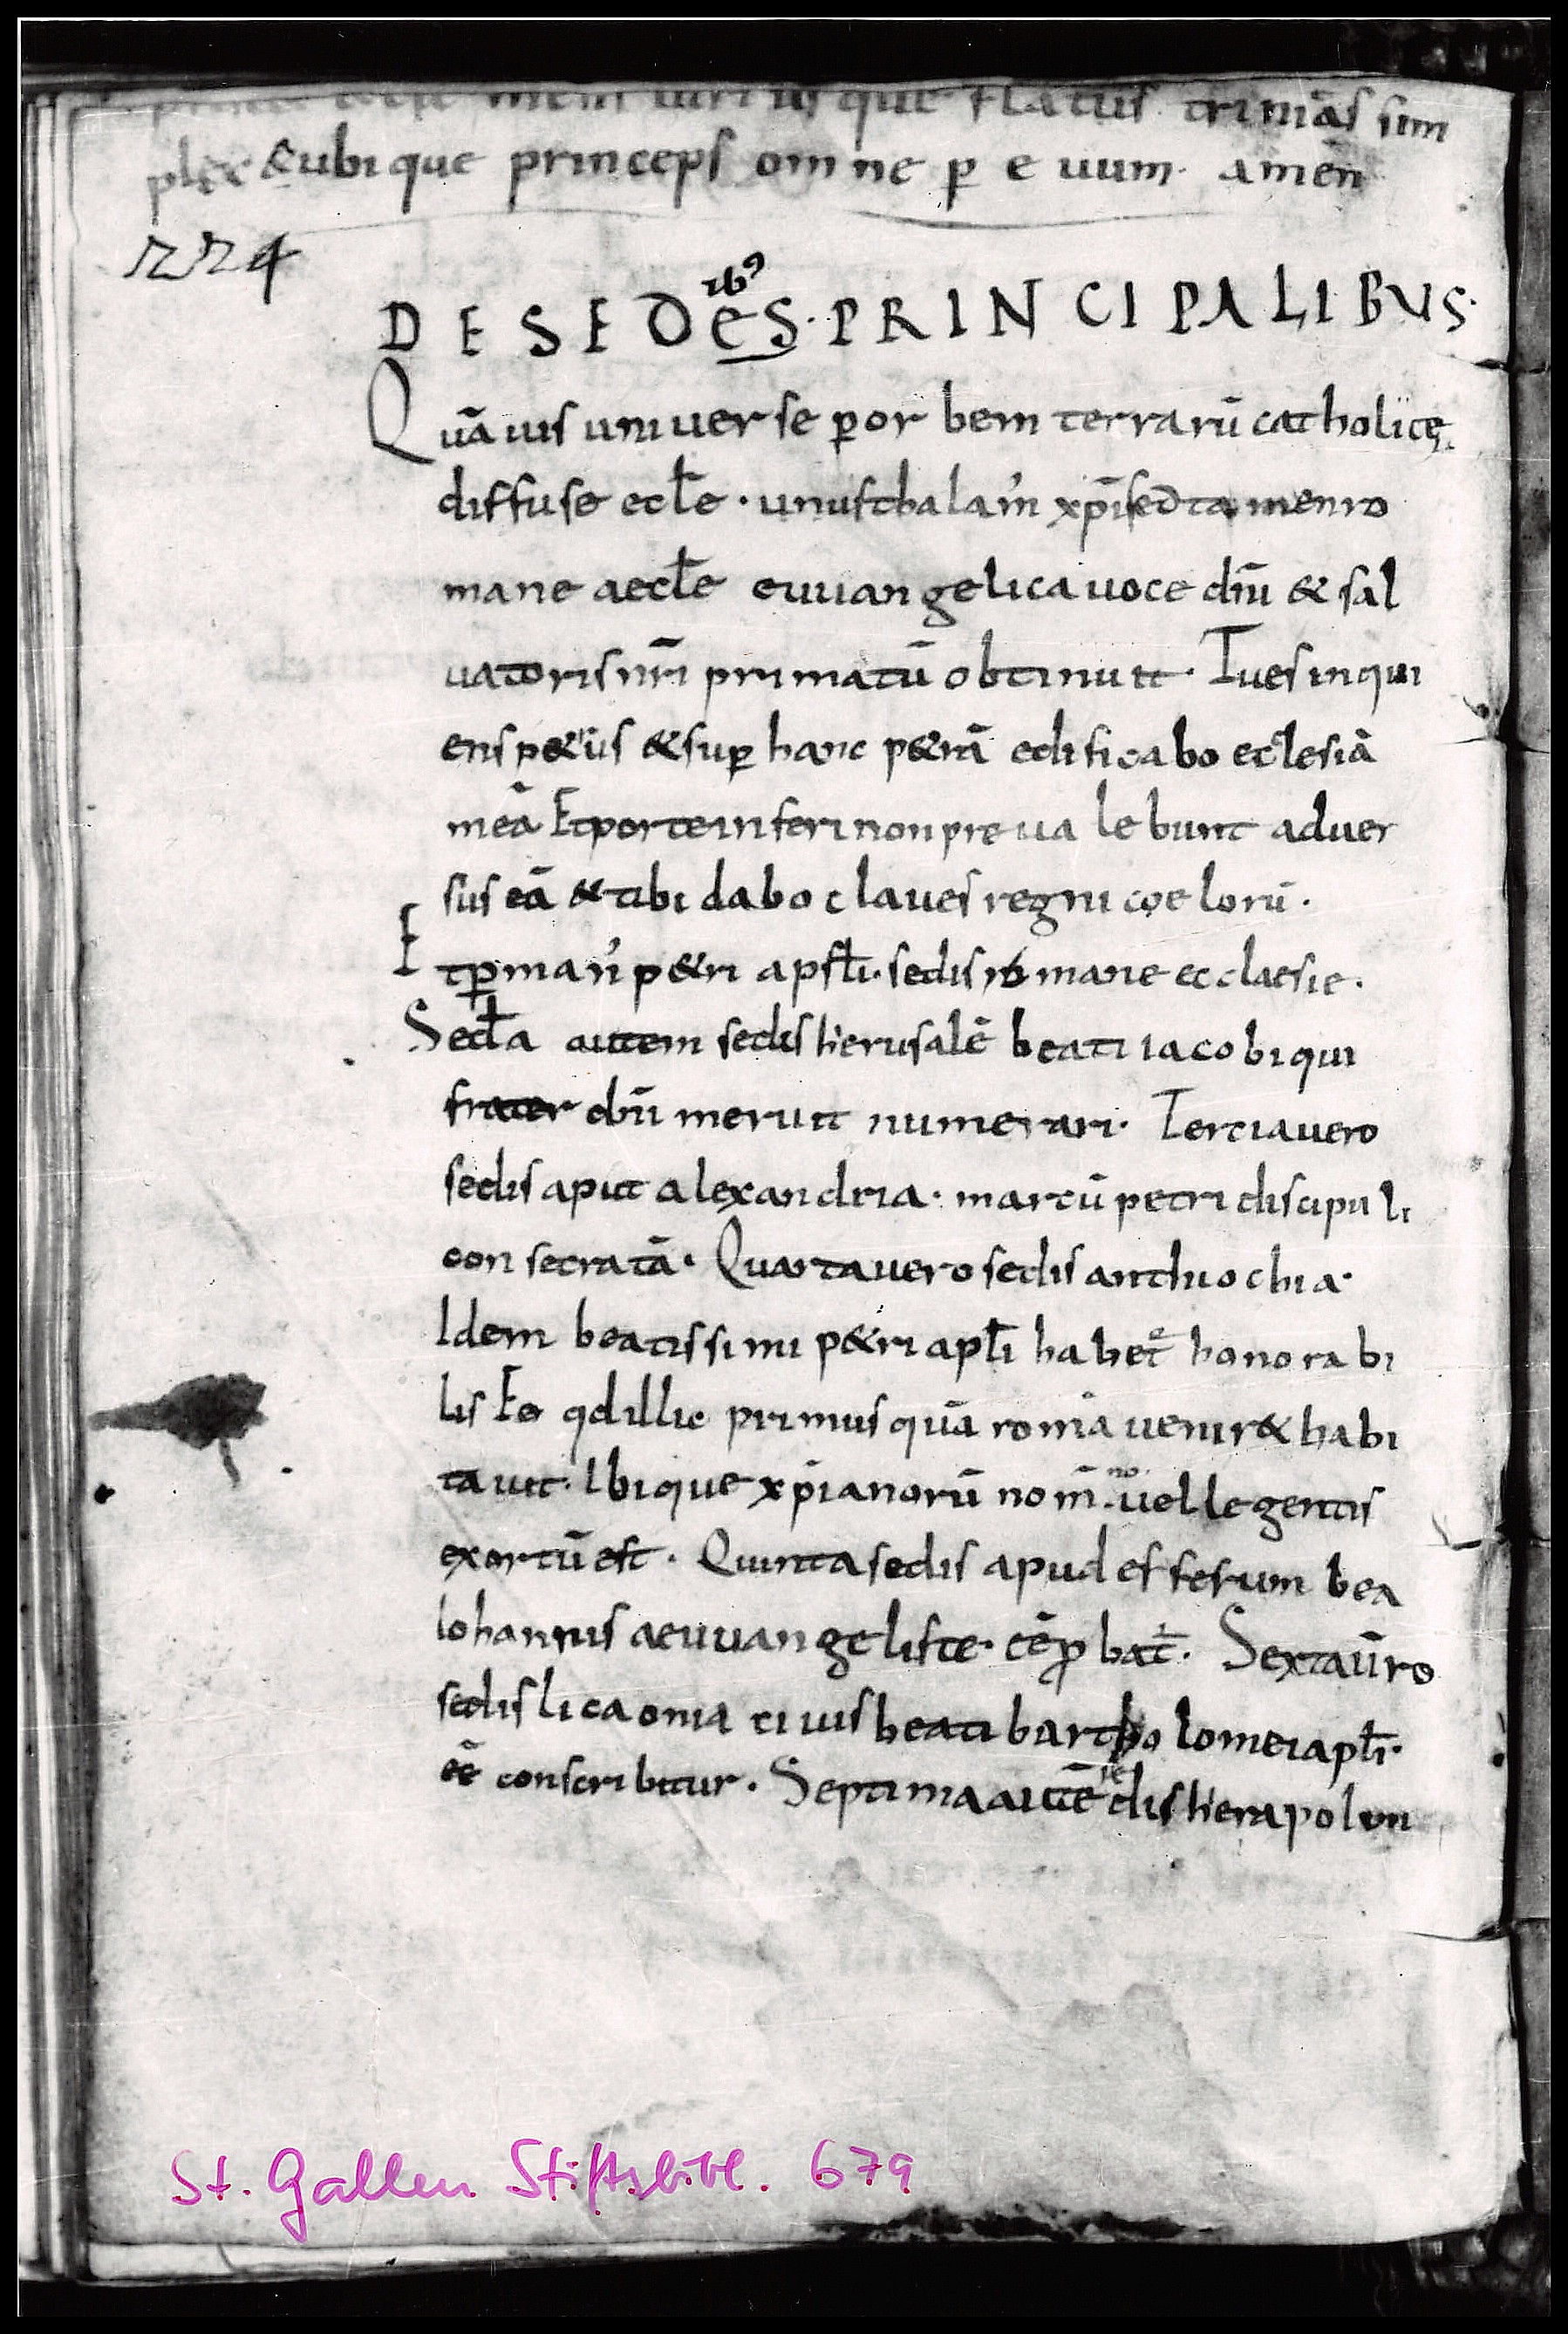 que flatus trinitas sim
plex & ubique princeps omne ꝑ e uum· amen
224
DE SEDES·PRINCIPALIBUS·
ibꝯ
Quāuis uniuerse ꝑ or bem terrarū catholicę
diffuse ecl̄e · unus thalam̄ xp̄i sed tamen ro
mane aecl̄e euuangelica uoce dn̄i & sal
uatoris nr̄i primatū obtinuit· Tu es inqui
ens p&rus & suꝑ hanc p&rā edificabo eclesiā
meā Et porte inferi non preualebunt aduer
sus eā & tibi dabo claues regni coelorū·
Et ꝑman̄ p&ri apstl̄i· sedis romane ecclaesie·
Secl̄a autem sedis hierusalē beati iacobi qui
frater dn̄i meruit numerari· Tertia uero
sedis aput alexandria· martū petri discipuli
consecratā· Quarta uero sedis anthiochia·
Idem beatissimi p&ri apl̄i habet honorabi
lis Eo qd illic primus quā romā uenir& habi
tauit· Ibique xp̄ianorū nom̄ no uelle gentis
exortū est· Quinta sedis apud effesum bea
Iohannis aeuuangeliste· eē ꝓbat̄· Sexta ūro
sedis licaonia ciuis beati bartholomei apl̄i·
eē conscribitur· Septima autē sedis hierapolim
St. Gallen Stiftsbibl. 679